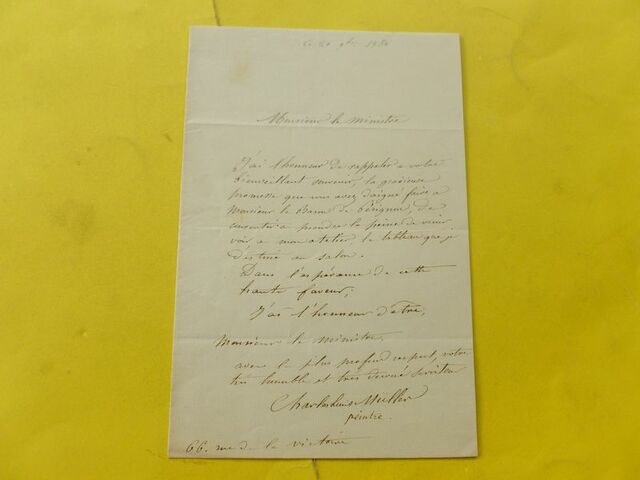 Ce 20 9bre 1850
Monsieur le ministre
J'ai l'honneur de rappeler a votre
bienveillant souvenir, la gracieuse
promesse que vous avez daigné faire a
Monsieur le Baron de Pérignon, de
consentir a prendre la peine de venir
voir a mon atelier, le tableau que je
destine au salon.
Dans l'espérance de cette
haute faveur;
J'ai l'honneur d'être,
Monsieur le ministre,
avec le plus profond respect, votre
très humble et très dévoué serviteur
Charles Louis Müller
peintre.
66. rue de la victoire